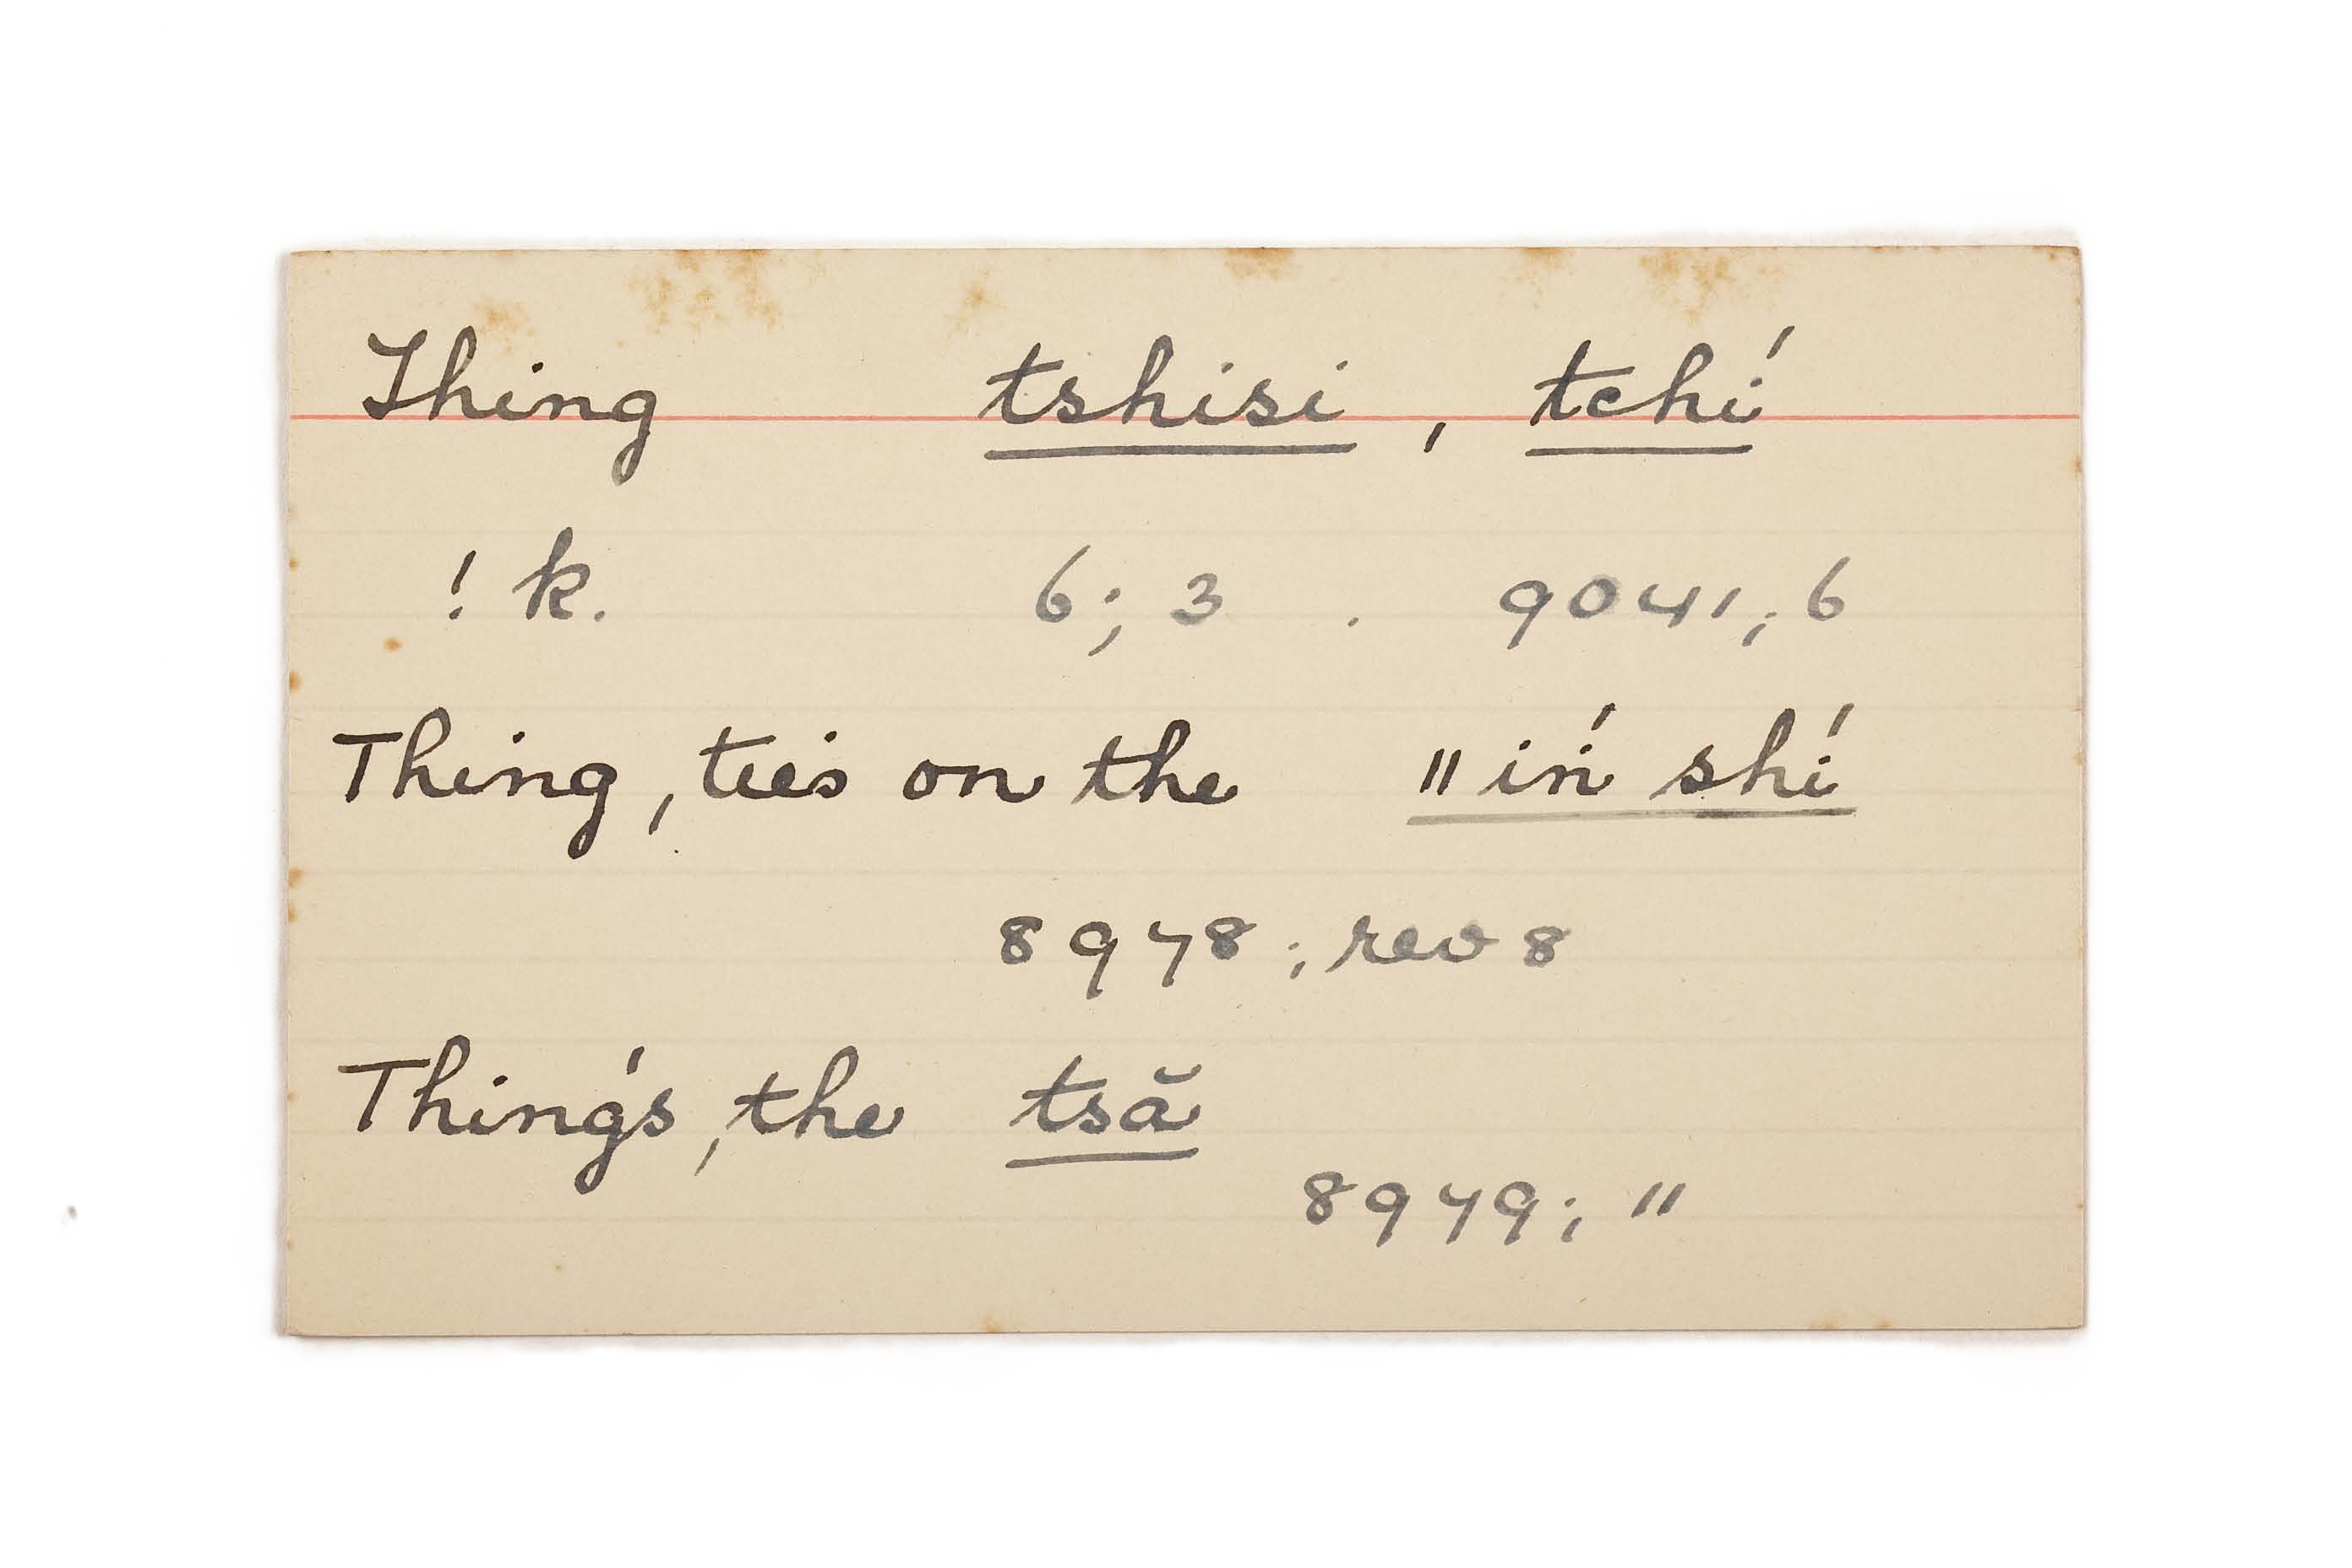 Thing tshisi, tchí
! k. 6; 3 . 9041; 6
Thing, ties on the ‖ iń shí
8978; rev 8
Thing's, the tsă
8979; "